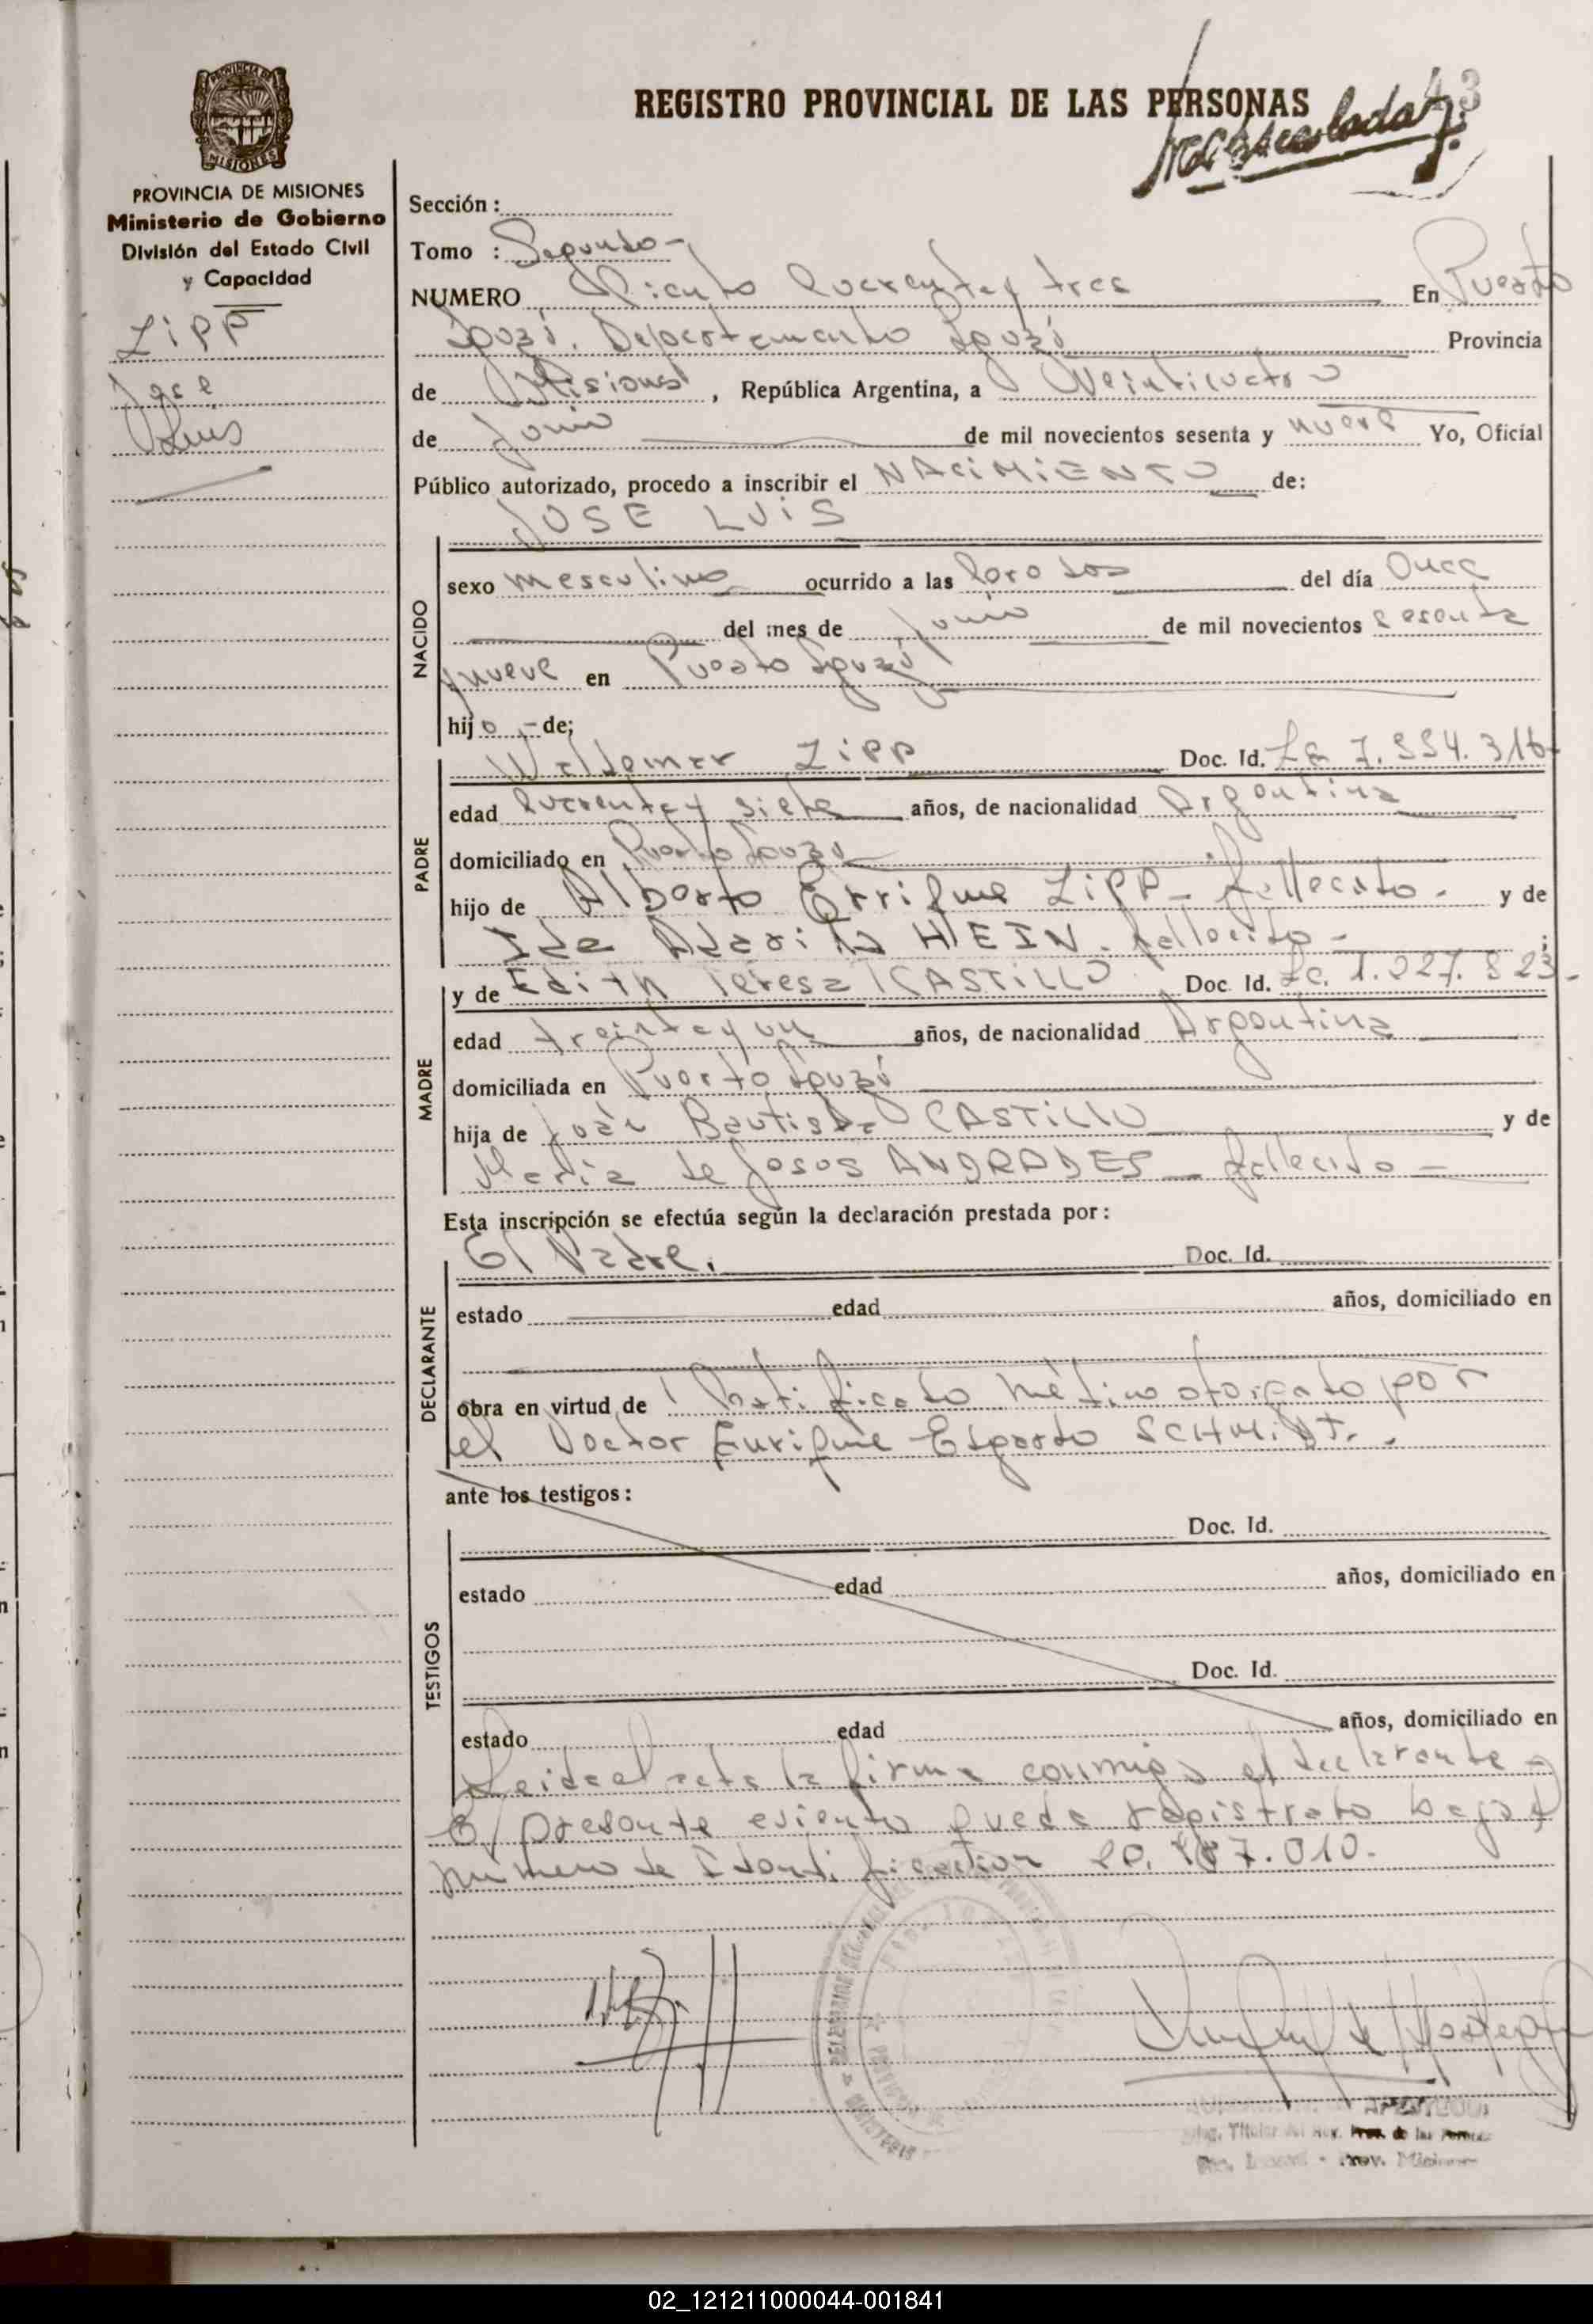 REGISTRO PROVINCIAL DE LAS PERSONAS
43
PROVINCIA DE MISIONES
Ministerio de Gobierno
División del Estado Civil
y Capacidad
Zipp
José
Luis
Sección :
Tomo : Segundo -
NUMERO Ciento Cuarenta y tres En Puerto
Iguazú. Departamento Iguazú Provincia
de Misiones, República Argentina, a Veinticuatro
de Junio de mil novecientos sesenta y nueve Yo, Oficial
Público autorizado, procedo a inscribir el NACIMIENTO de:
JOSE LUIS
NACIDO
sexo masculino ocurrido a las cero dos del día Once
del mes de Junio de mil novecientos sesenta
y nueve en Puerto Iguazú
hijo - de;
PADRE
Waldemar Zipp Doc. Id. 316
edad cuarenta y siete años, de nacionalidad Argentina
domiciliado en Puerto Iguazú
hijo de Alberto Errique Zipp - fallecido - y de
Ida HEIN. fallecido -
MADRE
y de Edith Teresa CASTILLO Doc. Id.
edad treinta y un años, de nacionalidad Argentina
domiciliada en Puerto Iguazú
hija de Juan Bautista CASTILLO y de
María de Jesus ANDRADES - fallecido -
Esta inscripción se efectúa según la declaración prestada por:
DECLARANTE
El Padre. Doc. Id.
estado edad años, domiciliado en
obra en virtud de Certificado médico otorgado por
el Doctor Enrique Edgardo SCHMIDT.
ante los testigos:
TESTIGOS
Doc. Id.
estado edad años, domiciliado en
Doc. Id.
estado edad años, domiciliado en
Leida el acta la firma conmigo el declarante -
El presente queda registrado bajo el
numero de Identificacion 010.
02_121211000044-001841